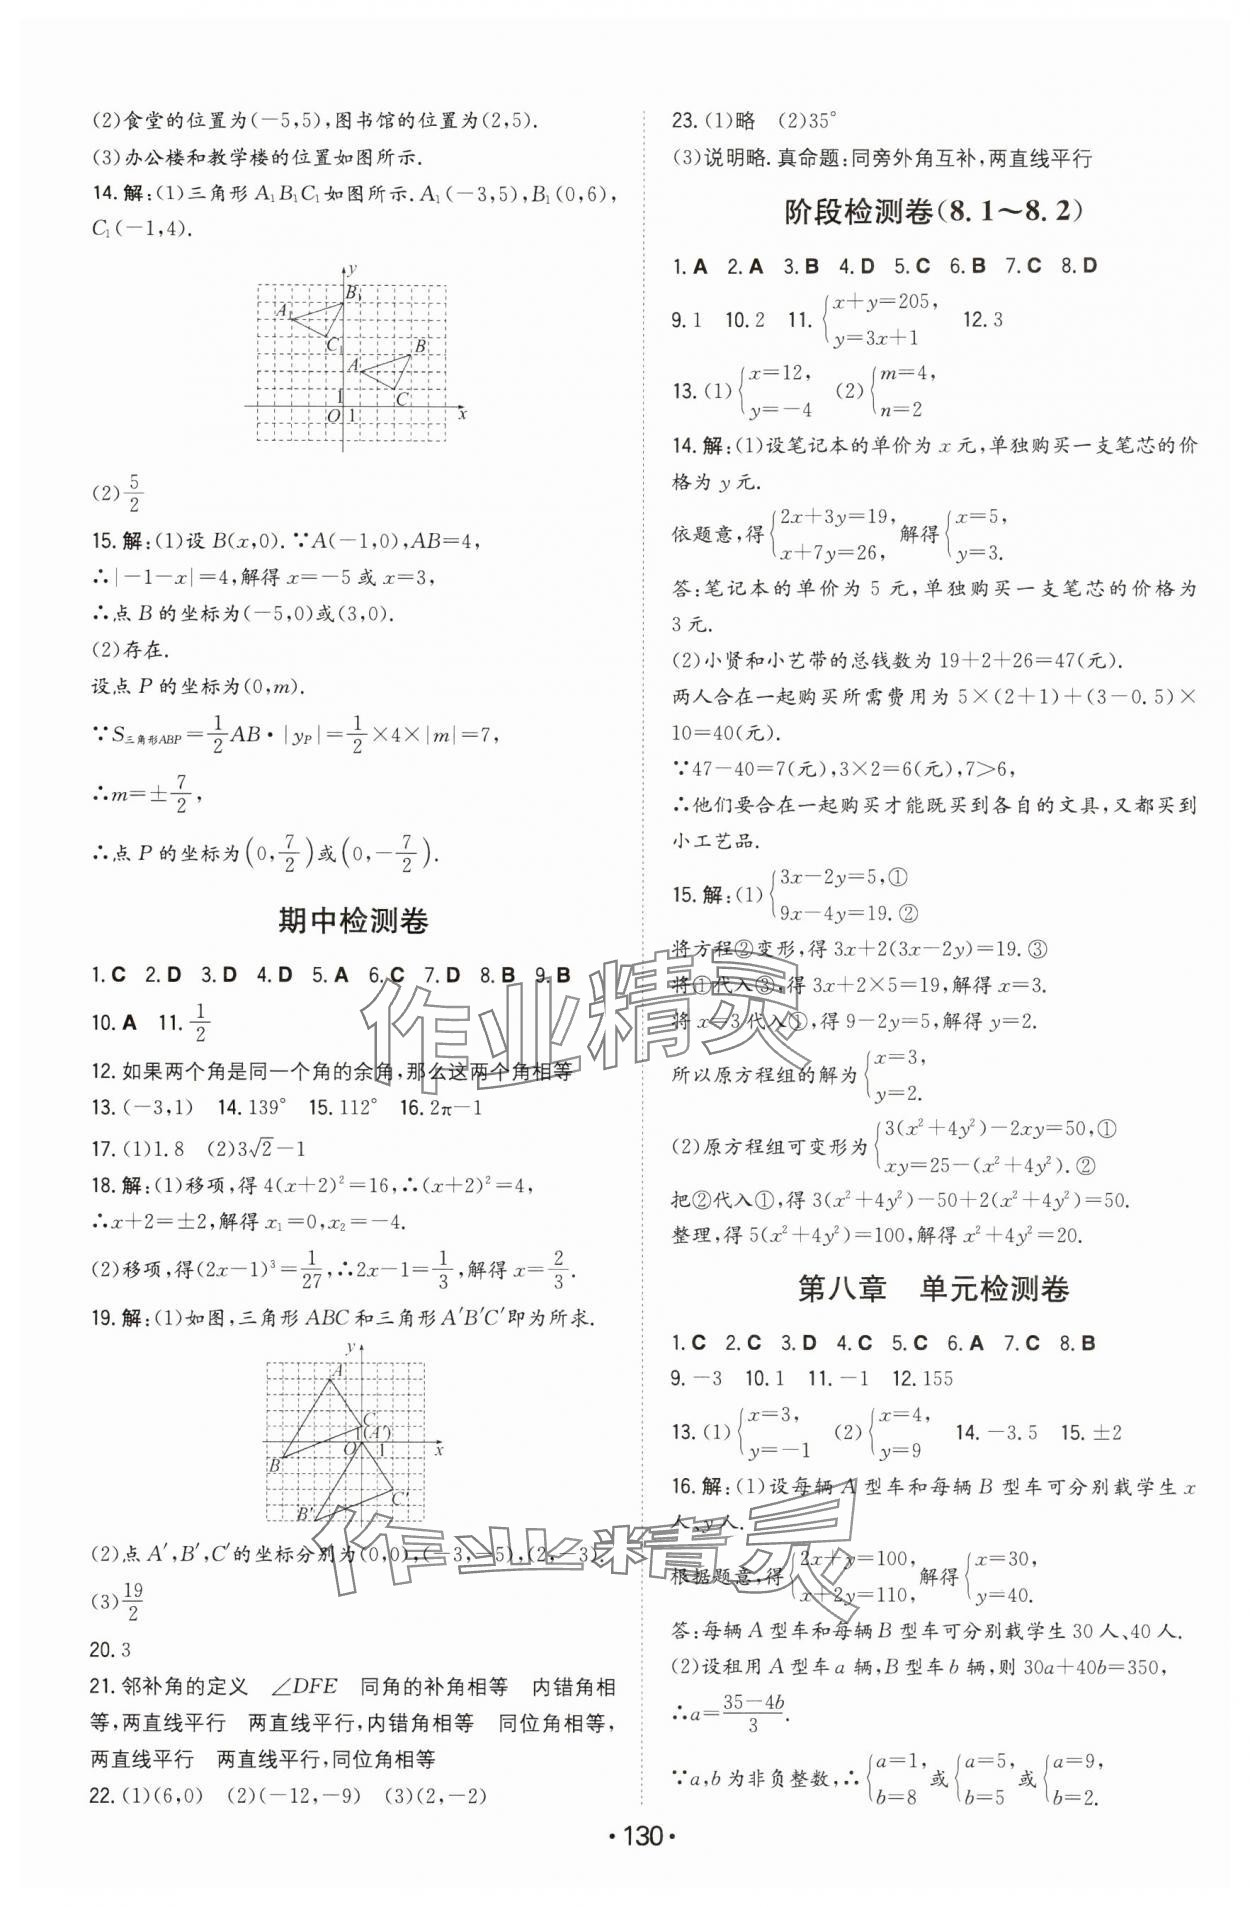 (2)食堂的位置为(-5,5),图书馆的位置为(2,5).
(3)办公楼和教学楼的位置如图所示.
14.解:(1)三角形 A₁B₁C₁如图所示.A₁(-3,5),B₁(0,6),
C₁(-1,4).
y
A₁ B₁ C₁ A B C
1 O 1 x
(2)5/2
15.解:(1)设 B(x,0).∵A(-1,0),AB=4,
∴|-1-x|=4,解得 x=-5 或 x=3,
∴点 B 的坐标为(-5,0)或(3,0).
(2)存在.
设点 P 的坐标为(0,m).
∵S三角形ABP=1/2AB·|yP|=1/2×4×|m|=7,
∴m=±7/2,
∴点 P 的坐标为(0,7/2)或(0,-7/2).
期中检测卷
1.C 2.D 3.D 4.D 5.A 6.C 7.D 8.B 9.B
10.A 11.1/2
12.如果两个角是同一个角的余角,那么这两个角相等
13.(-3,1) 14.139° 15.112° 16.2π-1
17.(1)1.8 (2)3√2-1
18.解:(1)移项,得 4(x+2)²=16,∴(x+2)²=4,
∴x+2=±2,解得 x₁=0,x₂=-4.
(2)移项,得(2x-1)³=1/27,∴2x-1=1/3,解得 x=2/3.
19.解:(1)如图,三角形 ABC 和三角形 A′B′C′即为所求.
y
A
C
1(A′)
O 1 x
B
C′
B′
(2)点 A′,B′,C′的坐标分别为(0,0),(-3,-5),(2,-3).
(3)19/2
20.3
21.邻补角的定义 ∠DFE 同角的补角相等 内错角相
等,两直线平行 两直线平行,内错角相等 同位角相等,
两直线平行 两直线平行,同位角相等
22.(1)(6,0) (2)(-12,-9) (3)(2,-2)
23.(1)略 (2)35°
(3)说明略.真命题:同旁外角互补,两直线平行
阶段检测卷(8.1～8.2)
1.A 2.A 3.B 4.D 5.C 6.B 7.C 8.D
9.1 10.2 11.{x+y=205, y=3x+1 12.3
13.(1){x=12, y=-4 (2){m=4, n=2
14.解:(1)设笔记本的单价为 x 元,单独购买一支笔芯的价
格为 y 元.
依题意,得{2x+3y=19, x+7y=26, 解得{x=5, y=3.
答:笔记本的单价为 5 元,单独购买一支笔芯的价格为
3 元.
(2)小贤和小艺带的总钱数为 19+2+26=47(元).
两人合在一起购买所需费用为 5×(2+1)+(3-0.5)×
10=40(元).
∵47-40=7(元),3×2=6(元),7>6,
∴他们要合在一起购买才能既买到各自的文具,又都买到
小工艺品.
15.解:(1){3x-2y=5,① 9x-4y=19.②
将方程②变形,得 3x+2(3x-2y)=19.③
将①代入③,得 3x+2×5=19,解得 x=3.
将 x=3 代入①,得 9-2y=5,解得 y=2.
所以原方程组的解为{x=3, y=2.
(2)原方程组可变形为{3(x²+4y²)-2xy=50,① xy=25-(x²+4y²).②
把②代入①,得 3(x²+4y²)-50+2(x²+4y²)=50.
整理,得 5(x²+4y²)=100,解得 x²+4y²=20.
第八章 单元检测卷
1.C 2.C 3.D 4.C 5.C 6.A 7.C 8.B
9.-3 10.1 11.-1 12.155
13.(1){x=3, y=-1 (2){x=4, y=9 14.-3.5 15.±2
16.解:(1)设每辆 A 型车和每辆 B 型车可分别载学生 x
人、y 人.
根据题意,得{2x+y=100, x+2y=110, 解得{x=30, y=40.
答:每辆 A 型车和每辆 B 型车可分别载学生 30 人、40 人.
(2)设租用 A 型车 a 辆,B 型车 b 辆,则 30a+40b=350,
∴a=35-4b/3.
∵a,b 为非负整数,∴{a=1, b=8 或{a=5, b=5 或{a=9, b=2.
·130·
作业精灵
作业精灵